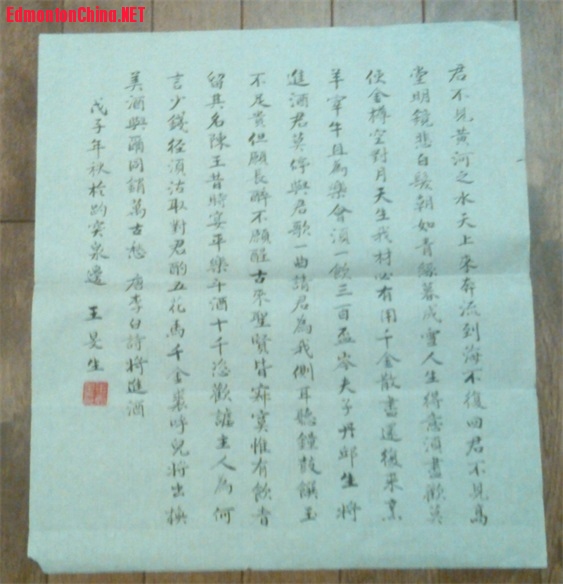 EdmontonChina.NET
君不見黃河之水天上来奔流到海不復回君不見高
堂明鏡悲白髮朝如青絲暮成雪人生得意須盡歡莫
使金樽空對月天生我材必有用千金散盡還復来烹
羊宰牛且為樂會須一飲三百盃岑夫子丹邱生將
進酒君莫停與君歌一曲請君為我側耳聽鐘鼓饌玉
不足貴但願長醉不願醒古来聖賢皆寂寞惟有飲者
留其名陳王昔時宴平樂斗酒十千恣歡謔主人為何
言少錢径須沽取對君酌五花馬千金裘呼兒將出換
美酒與爾同銷萬古愁 唐李白詩將進酒
戊子年秋於趵突泉邊 王昊生